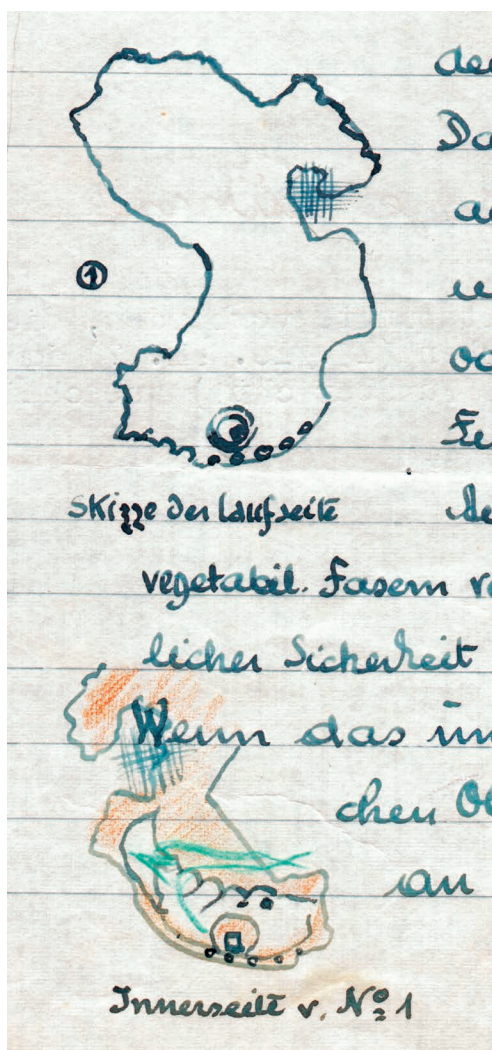 de
Da
a
①
u
oc
Fe
Skizze der Laufseite
de
vegetabil. Fasern v
licher Sicherheit
Wenn das im
chen Ob
an
Innerseite v. No 1